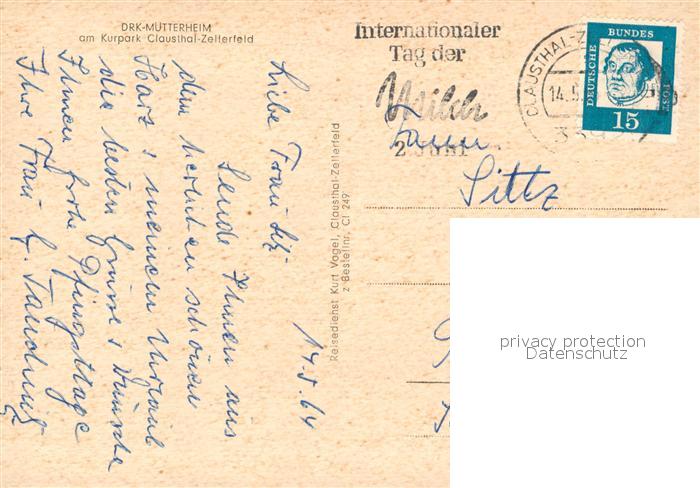 DRK-MÜTTERHEIM
am Kurpark Clausthal-Zellerfeld
Internationaler
Tag der
Milch
2. Juni
CLAUSTHAL-Z
14.5.
DEUTSCHE BUNDESPOST
15
Reisedienst Kurt Vogel, Clausthal-Zellerfeld
z Bestellnr, Cl 249
14.5.64
Liebe Frau
Sende Ihnen aus
dem herrlichen schönen
Harz, meinem Urlaub
die besten Grüsse + Wünsche
Ihnen frohe Pfingsttage
Ihre Frau
Sittz
privacy protection
Datenschutz